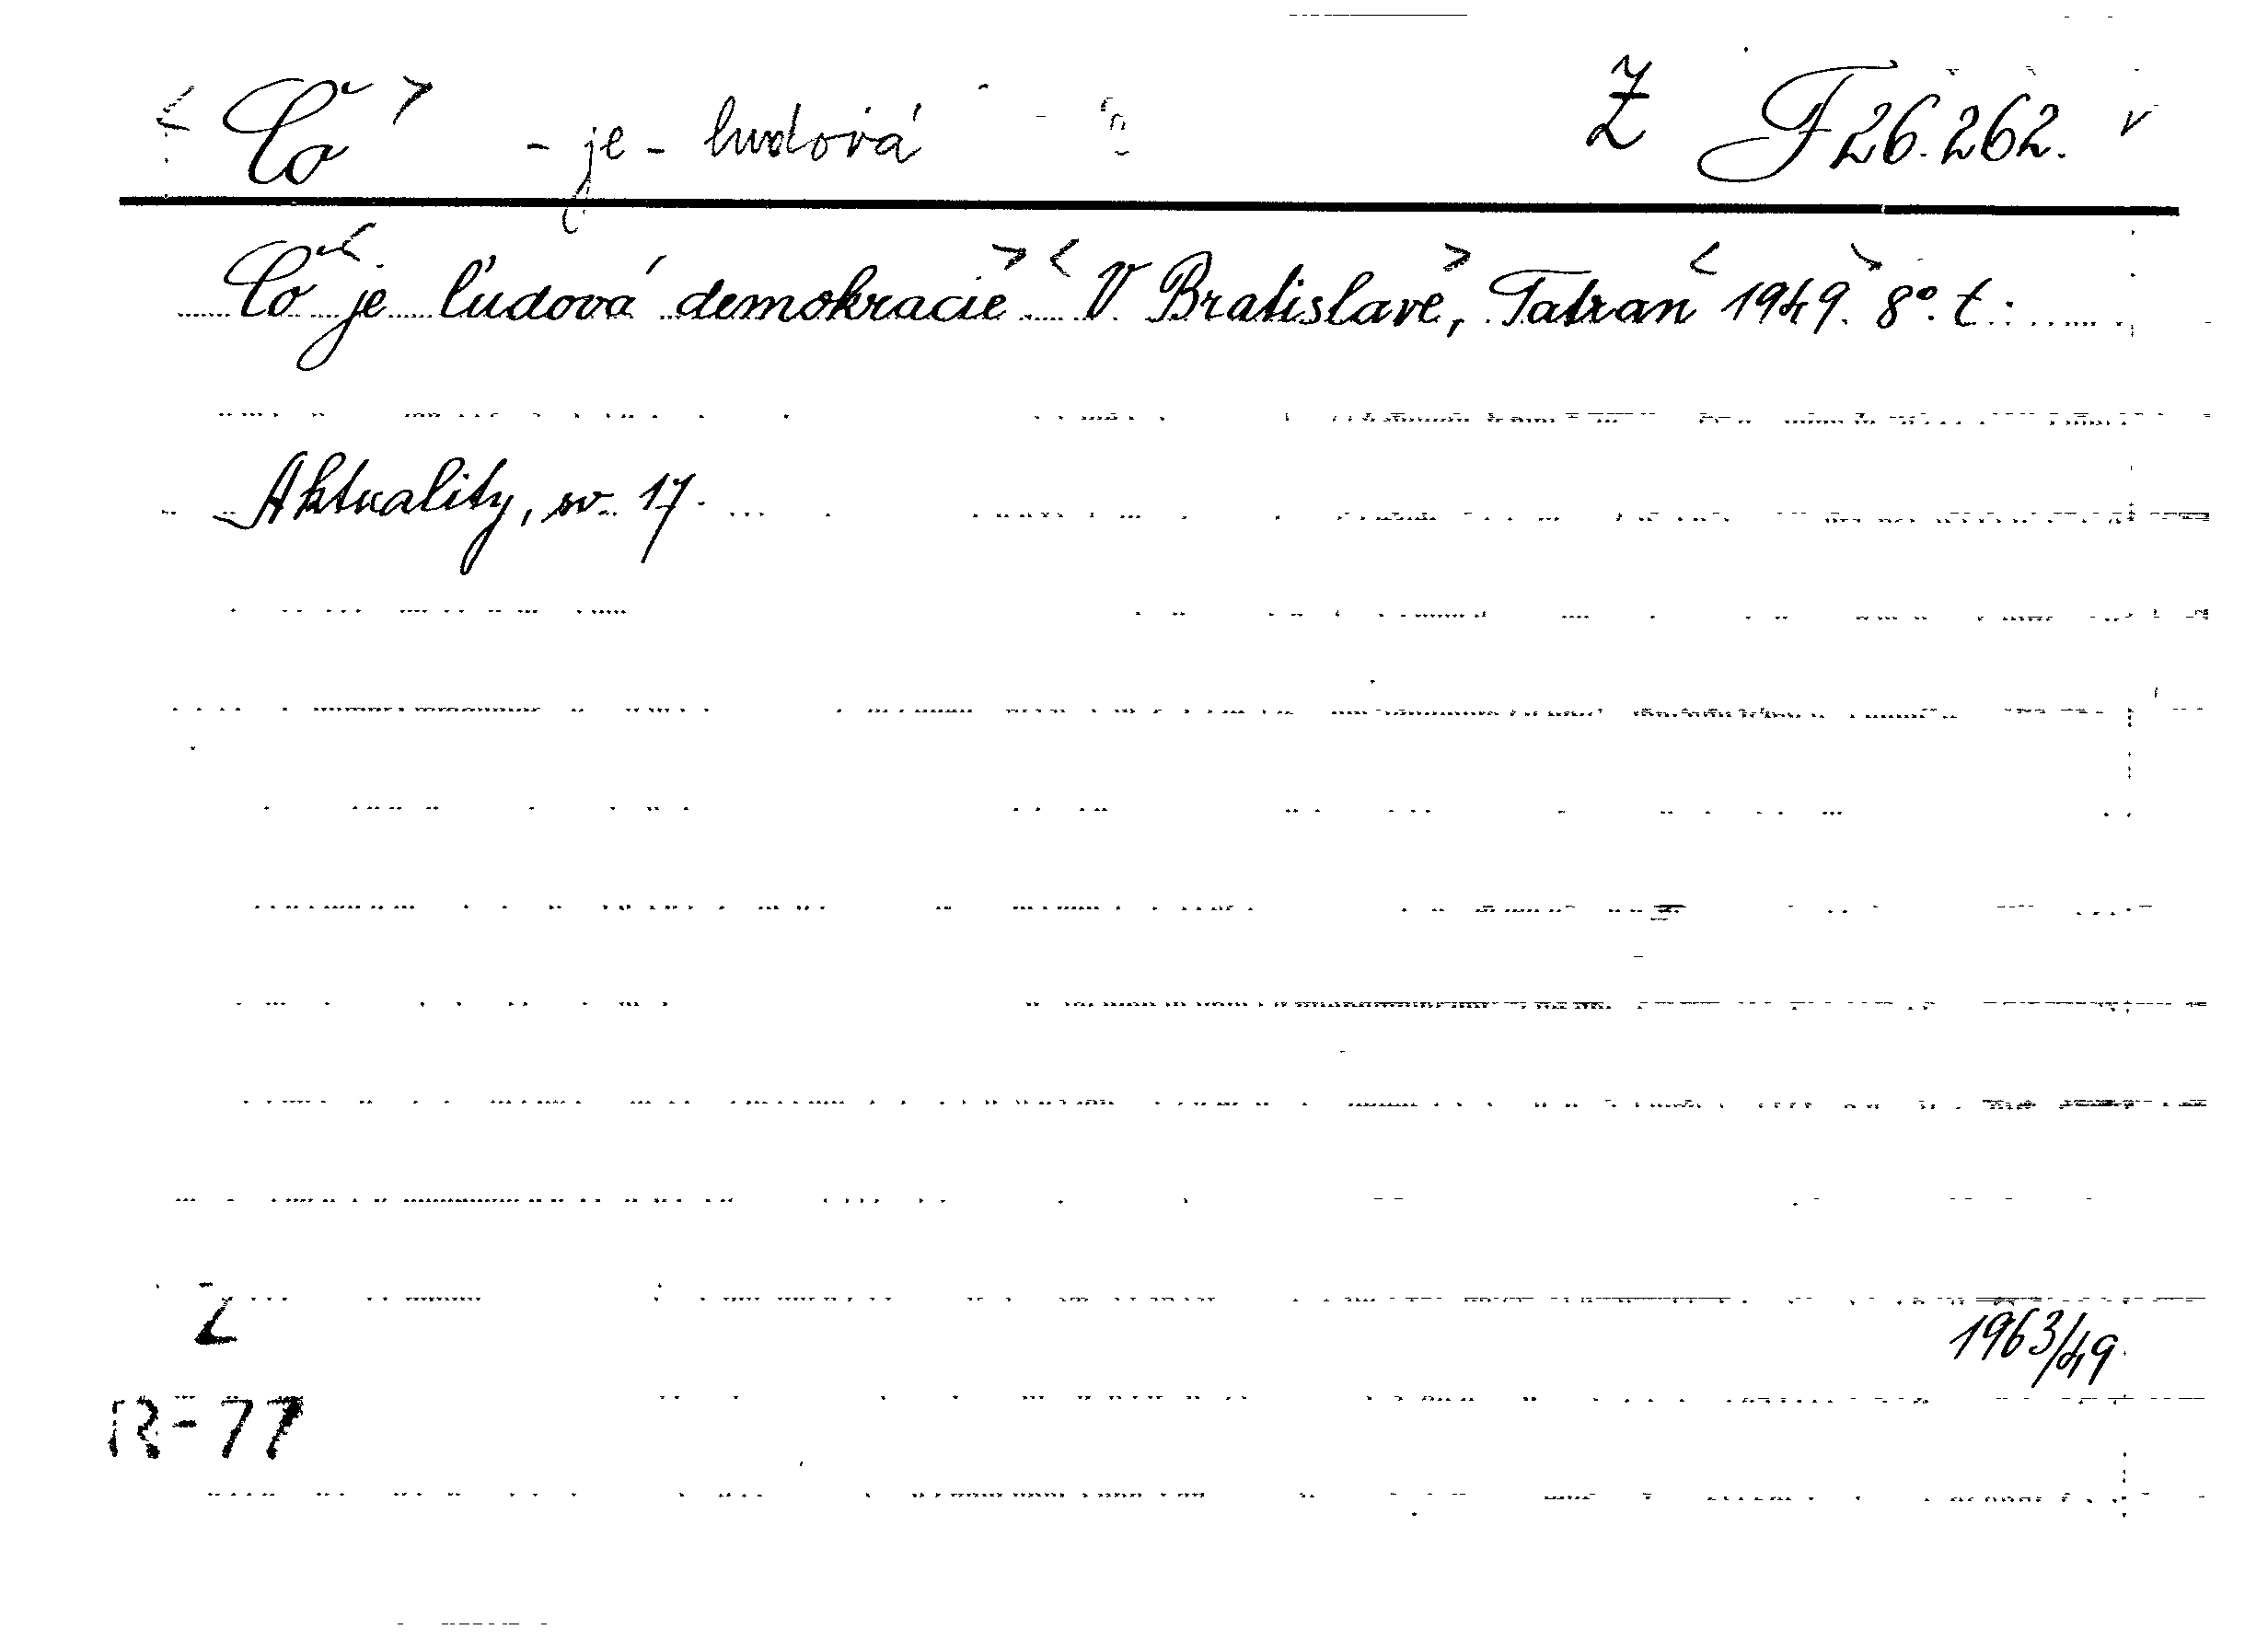 < Čo > - je - ludová Ž F 26.262. v
Čo < je ľudová demokracie > < V Bratislave, > Tatran < 1949. > 8°. t.
Aktuality, sv. 17.
Z
1963/49.
R-77